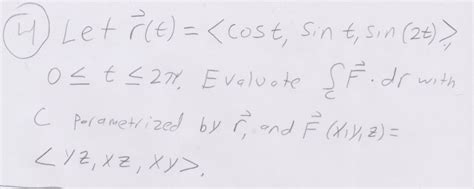 ④ Let r⃗(t) = <cos t, sin t, sin (2t)>,
0 ≤ t ≤ 2π. Evaluate ∫_C F⃗ · dr with
C parametrized by r⃗, and F⃗ (x,y,z) =
<yz, xz, xy>.